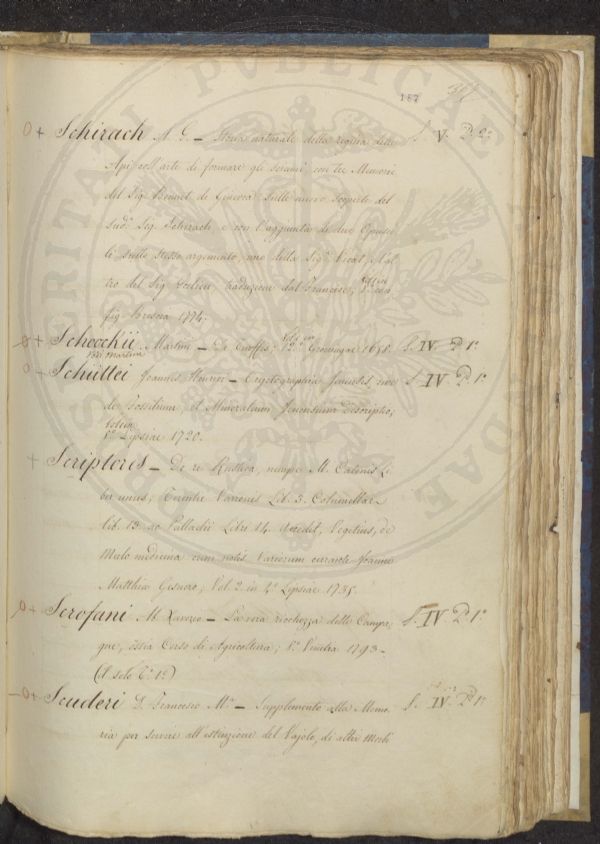 187
O + Schirach A. G. – Storia naturale della regina delle S. V. P. 2º
Api coll'arte di formare gli sciami con tre Memorie
del Sig. Bonnet di Ginevra sulle nuove scoperte del
sud.º Sig. Schirach e con l'aggiunta di due Opusco
li sullo stesso argomento, uno della Sig.ª Vicat, l'al
tro del Sig. traduzione dal Francese; con
fig. Brescia 1774.
O + Schoockii Martini – De Groningae 1658 S. IV. P. 1º
vedi Martini
O + Schüttei Joannis Henrici – Oryctographia Jenensis, sive S. IV. P. 1º
de Fossilium, et Mineralium Jenensium Descriptio;
Lipsiae 1720.
+ Scriptores – De re Rustica, nempe M. Catonis Li
ber unus; Terentii Varronis Lib. 3. Columellae
Lib. 13 ac Palladii Libri 14. Accedit, Vegetius, de
Mulo medicina cum notis Variorum curante Joanne
Matthia Gesnero; Vol. 2 in 4º Lipsiae 1735.
O + Scrofani M. Xaverio – La vera ricchezza delle Campa S. IV. P. 1º
gne, ossia Corso di Agricoltura; 8º Venetia 1793 –
(il solo T. 1º)
– O + Scuderi D. Francesco Mª – Supplemento alla Memo S. IV. P. 1º
ria per servire all'estinzione del Vajolo, di altri Morbi